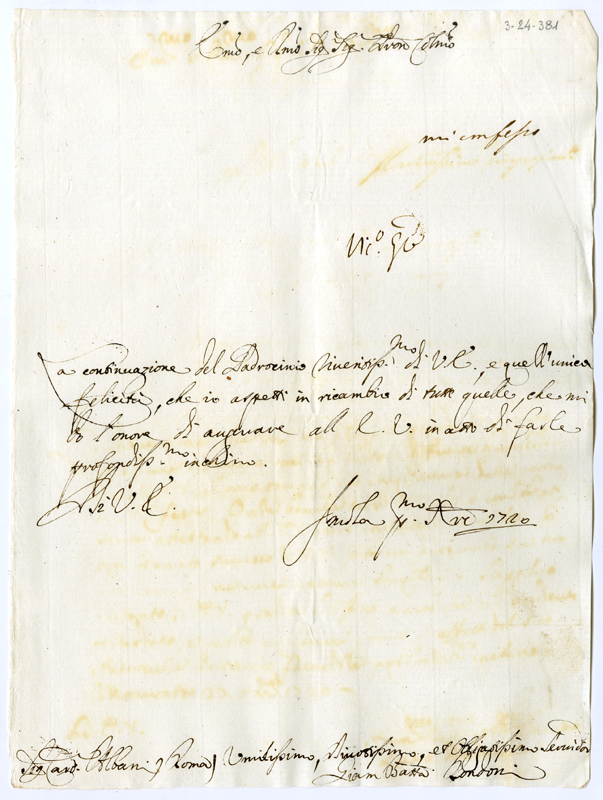 3-24-381
Emo, e Rmo Sig. Sig. Pron Colmo
mi confesso
La continuazione del Padrocinio riveritiss.mo di V. E., e quell'unica
felicità, che io aspetti in ricambio di tutte quelle, che mi
do l'onore di augurare all E. V. in atto di farle
profondiss.mo inchino.
Di V. E.
Imola p.mo Xbre 1720
Sig. Card. Albani (Roma) Umilissimo, Divotissimo, et Obligatissimo Servidor
Giam Batta Bondoni